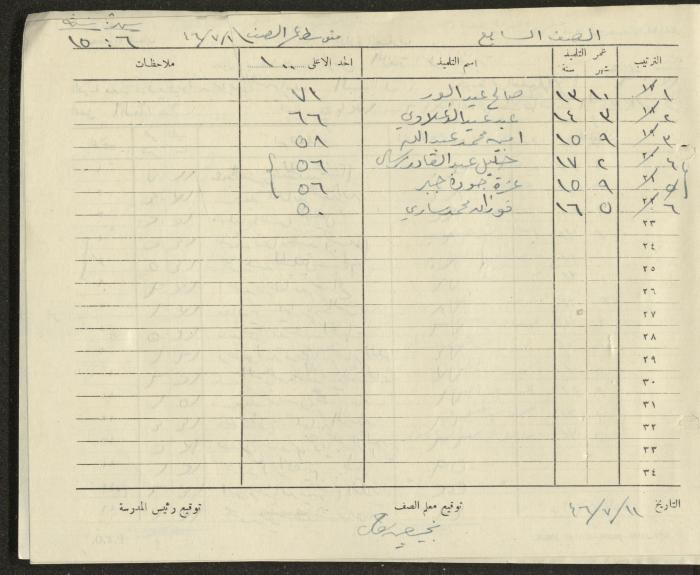 شهر سنة
الصف السابع متوسط عمر الصف ٤٦/٧/١ ٦ : ١٥
الترتيب عمر التلميذ شهر سنة اسم التلميذ الحد الاعلى ١٠٠ ملاحظات
١ ١٠ ١٣ صالح عبد ٧١
٢ ٣ ١٤ عبد ٦٦
٣ ٩ ١٥ محمد عبد الله ٥٨
٤ ٢ ١٧ عبد القادر ٥٦
٥ ٩ ١٥ عزة جودة جبر ٥٦
٦ ٥ ١٦ محمد ساري ٥٠
٢٣
٢٤
٢٥
٢٦
٢٧
٢٨
٢٩
٣٠
٣١
٣٢
٣٣
٣٤
التاريخ ٤٦/٧/١١ توقيع معلم الصف توقيع رئيس المدرسة